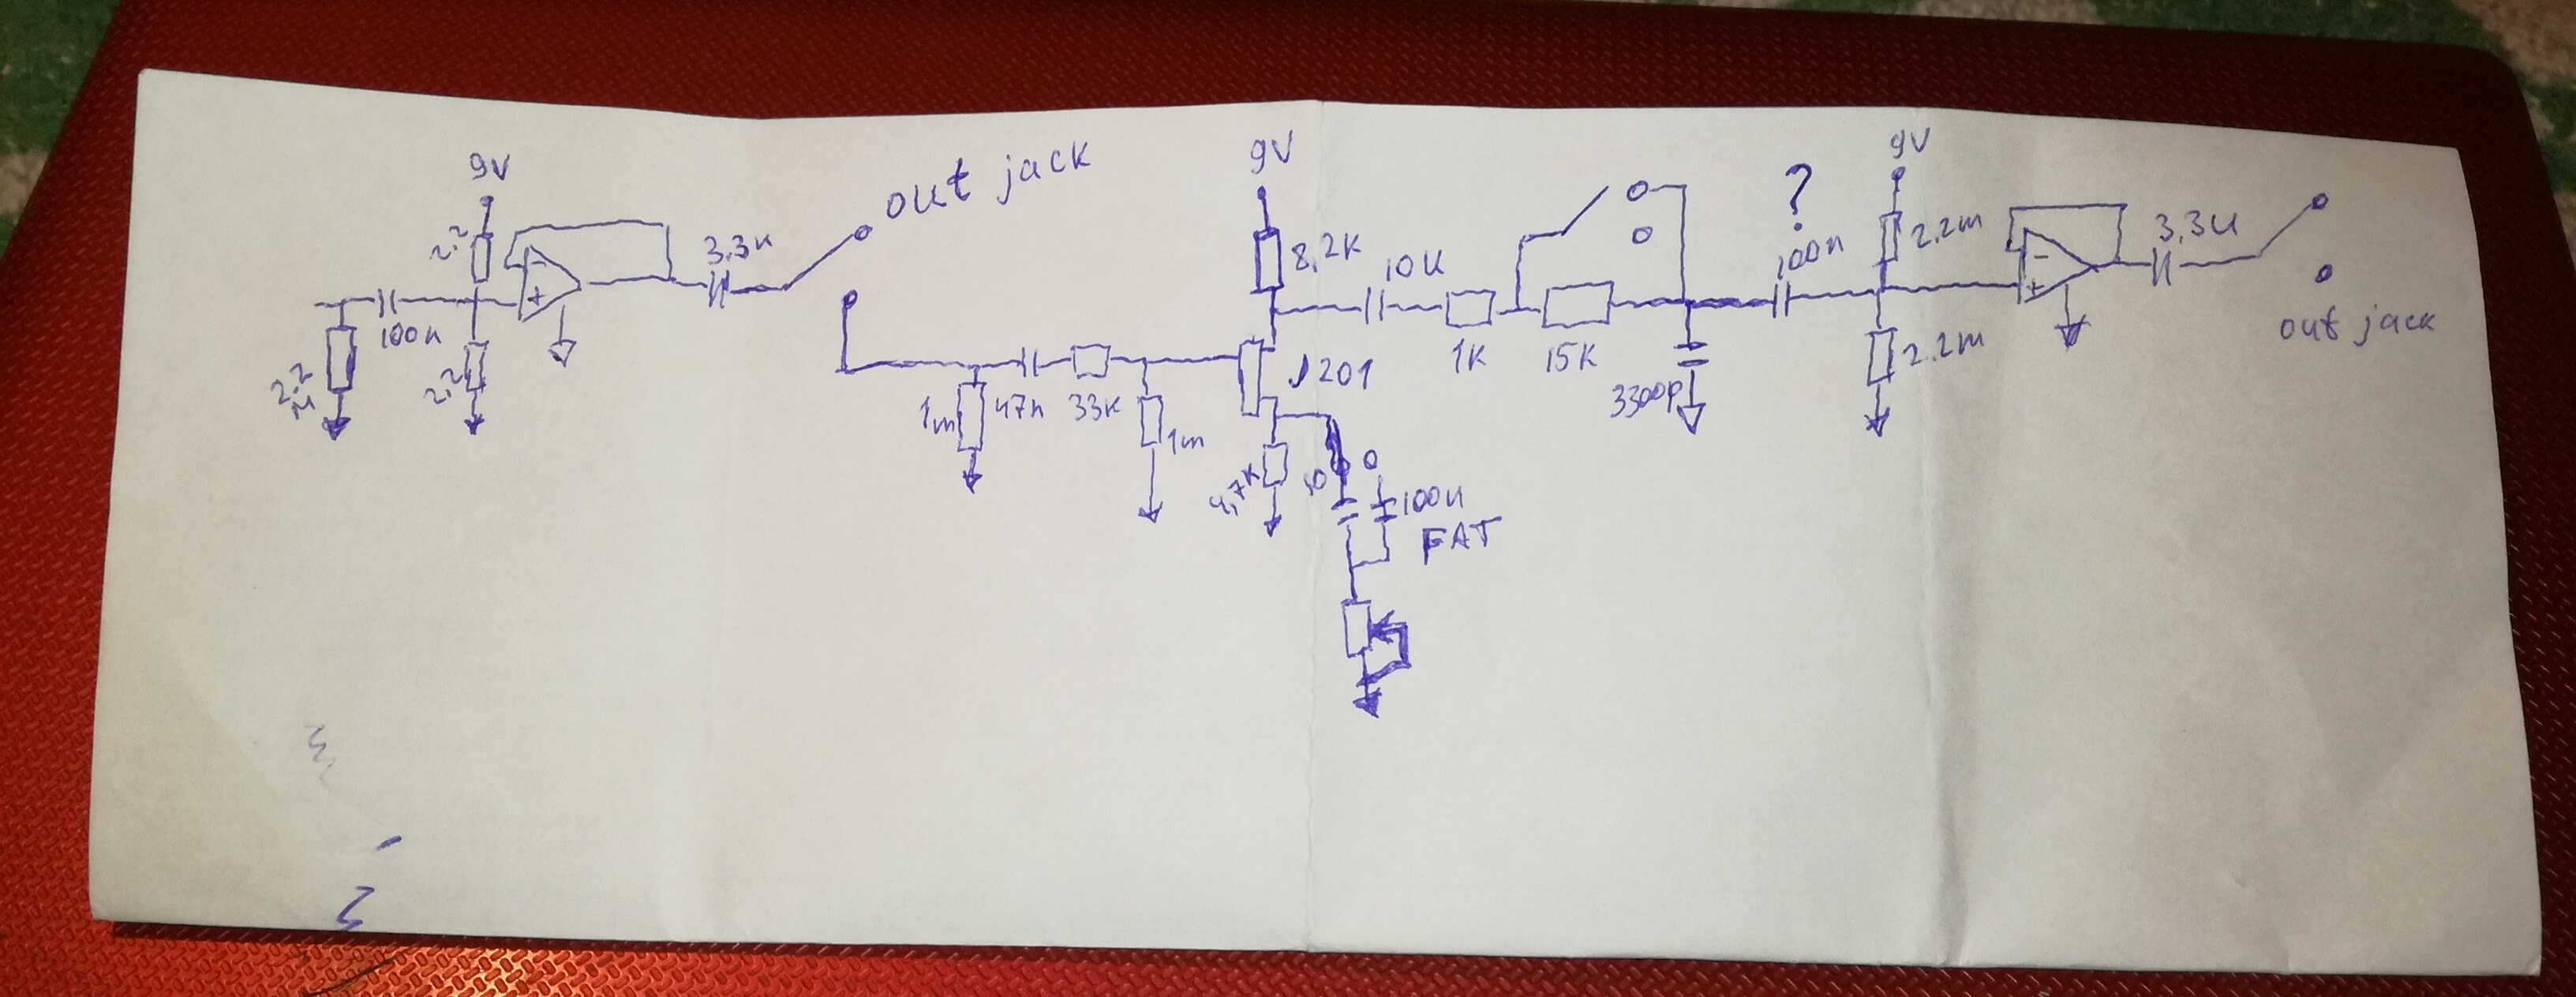 9V
2,2
100n
2,2
M
2,2
-
+
3,3u
out jack
1m
47n
33K
1m
9V
8,2K
J201
4,7K
10
100u
FAT
10u
1K
15K
3300p
?
100n
9V
2,2m
2.2m
-
+
3.3u
out jack